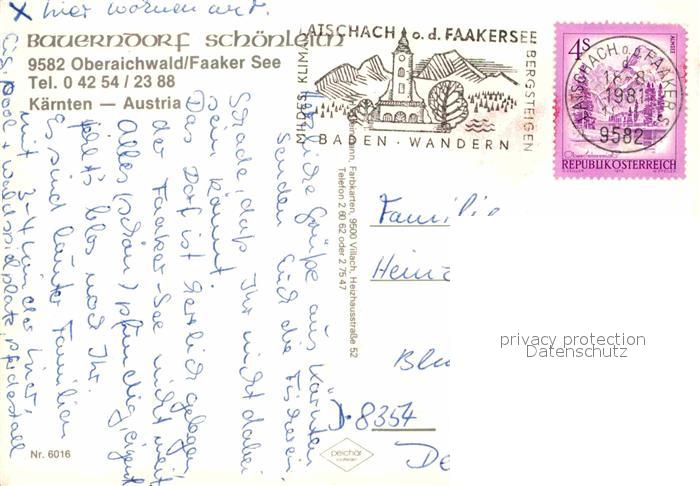 x hier wohnen wir.
Bauerndorf Schönleitn
9582 Oberaichwald/Faaker See
Tel. 0 42 54 / 23 88
Kärnten — Austria
Herzliche Grüße aus Kärnten
senden Euch die
Schade, daß Ihr nicht dabei
sein könnt.
Das Dorf ist herrlich gelegen
der Faaker-See nicht weit
Alles (schau) pfundig, eigent
fehlt's blos noch Ihr.
Es sind lauter Familien
mit 3-4 Kinder hier,
Pool + Waldspielplatz, Pferdestall
Nr. 6016
Farbkarten, 9500 Villach, Heizhausstraße 52
Telefon 2 60 62 oder 2 75 47
MILDES KLIMA
LATSCHACH o. d. FAAKERSEE
BERGSTEIGEN
BADEN · WANDERN
LATSCHACH o. d. FAAKER S
18.-8
1981
9582
4S
ALMSEE
REPUBLIK ÖSTERREICH
Familie
Hein
D-8354
De
peichär
privacy protection
Datenschutz